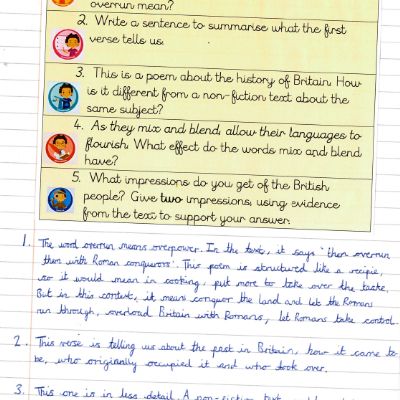 overrun mean?
2. Write a sentence to summarise what the first
verse tells us.
3. This is a poem about the history of Britain. How
is it different from a non-fiction text about the
same subject?
4. As they mix and blend, allow their languages to
flourish. What effect do the words mix and blend
have?
5. What impressions do you get of the British
people? Give two impressions, using evidence
from the text to support your answer.
1. The word overrun means overpower. In the text, it says "then overrun
them with Roman conquerors". This poem is structured like a recipie,
so it would mean in cooking, put more to take over the taste.
But in this context, it means conquer the land and let the Romans
run through, overload Britain with Romans, let Romans take control.
2. This verse is telling us about the past in Britain, how it came to
be, who originally occupied it and who took over.
3. This one is in less detail. A non-fiction text